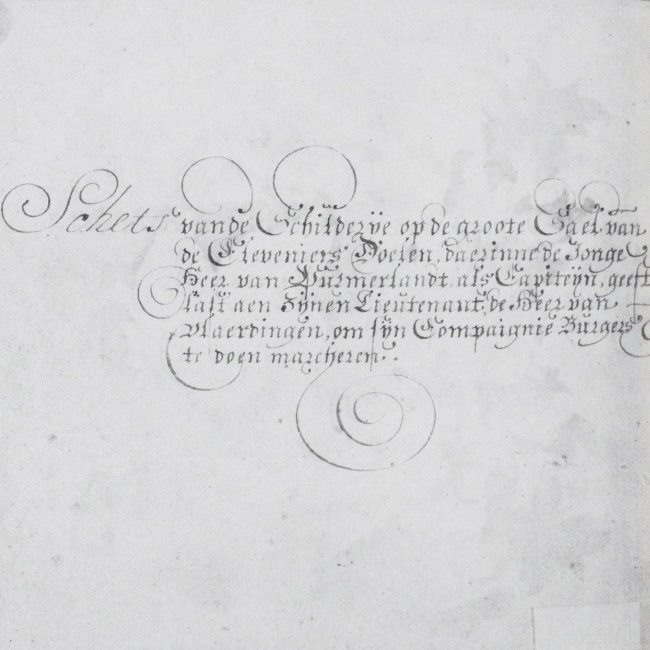 Schets vande Schilderÿe op de groote Sael van
de Cleveniers Doelen, daerinne de Jonge
Heer van Purmerlandt als Capiteÿn, geeft
last aen zÿnen Lieutenant, de Heer van
Vlaerdingen, om sÿn Compaignie Burgers
te doen marcheren.